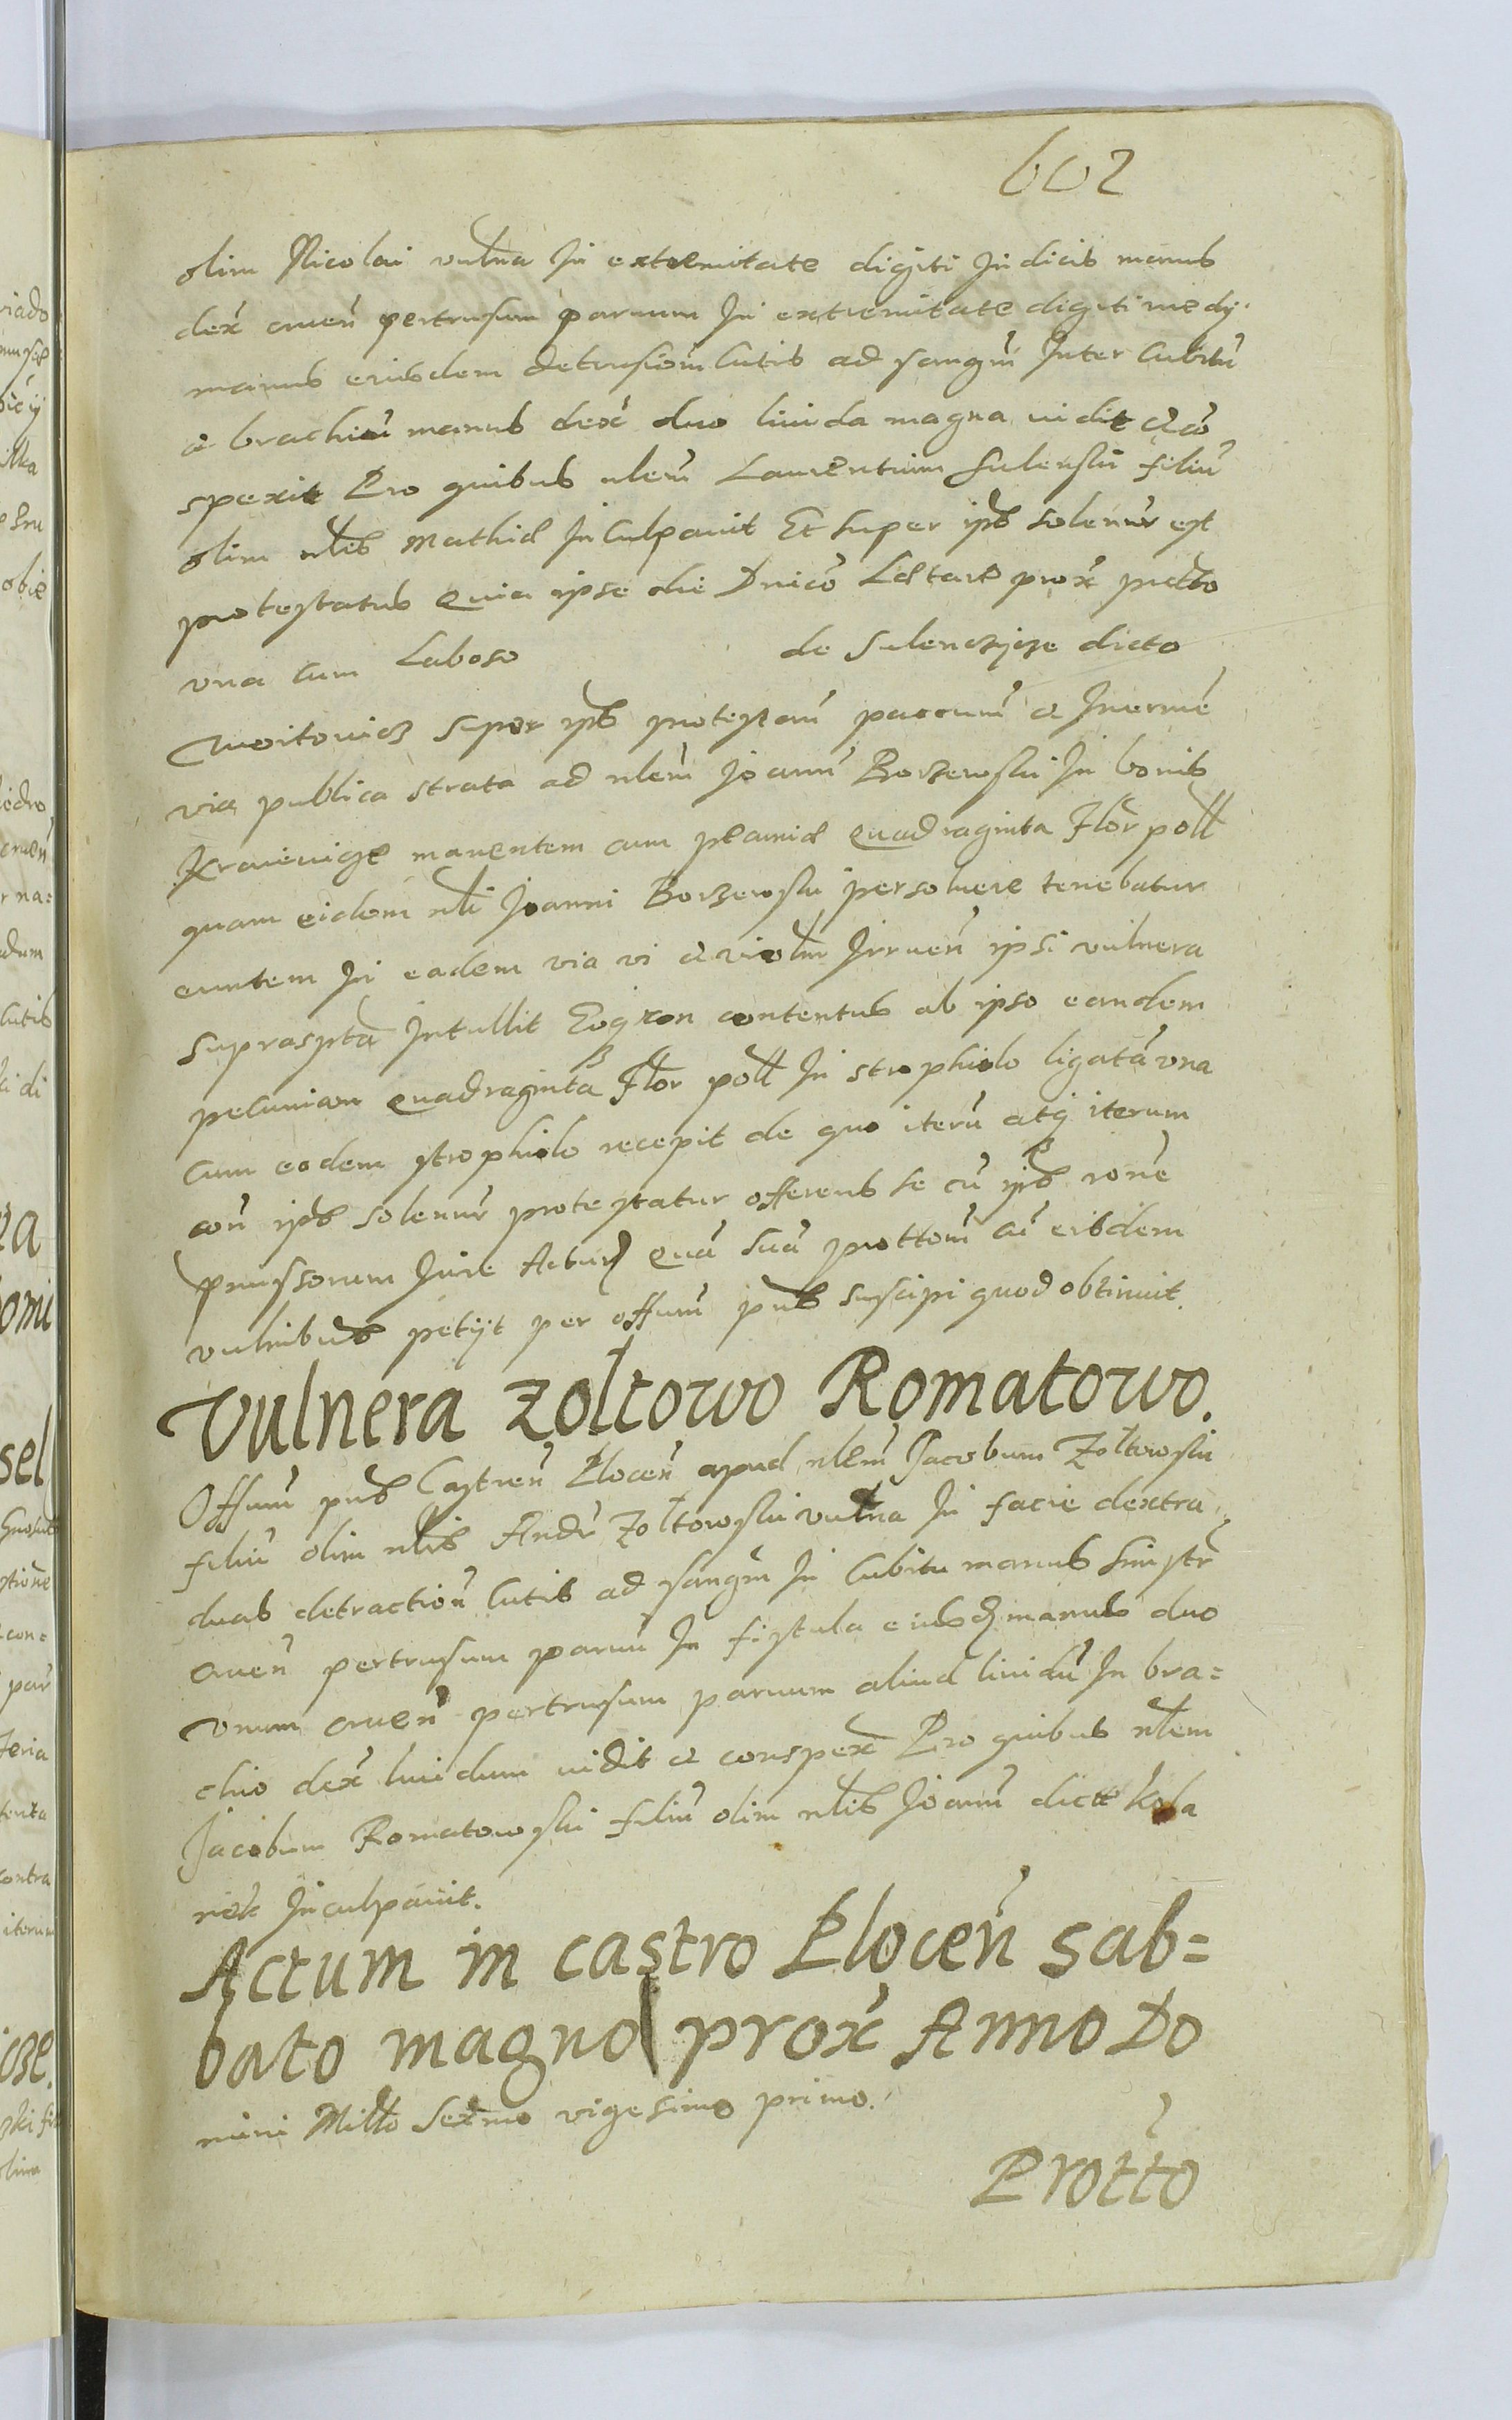 602
olim Nicolai vulna In extremitate digiti Indicis manus
dex cruen pertrusum paruum In extremitate digiti medy
manus eiusdem detrusiom Cutis ad sangm Inter Cubitu
a brachiu manus dex duo liuida magna uidit a co
spexit Pro quibus nlem Laurentium Sulenski filiu
olim nlis Mathiæ Inculpauit Et super ips solemr est
protestatus Quia ipse die Dnico Lætare prox prtto
vna cum Laboso de Sulenczycze dicto
Cwoitowicz super ips protestan paccum a Inerme
via publica strata ad nlem Joann Borzewski In bonis
manentem cum pecunia Quadraginta Flor poll
quam eidem nli Joanni Borzewski persoluere tenebatur
euntem In eadem via vi a violtur Irruen ipsi vulnera
suprasptа Intullit Eoq non contentus ab ipso eandem
pecuniam Quadraginta Flor poll In strophiolo ligata vna
cum eodem strophiolo recepit de quo iteru atq iterum
con ips solemr protestatur offerens se cu ips rone
pmissorum Iure Actur Qua sua prottom ac eisdem
vulnibus petyt per offum pns suscipi quod obtinuit.
Vulnera Zołtowo Romatowo.
Offum pns Castren Plocen apud nlem Jacobum Zołtowski
filiu olim nlis Andr Zołtowski vulna In facie dextra
duas detraction Cutis ad sangm In Cubitu manus sinistr
cruen pertrusum paruu In fistula eiusd manus duo
vnum cruen pertrusum paruum aliud liuidu In bra=
chio dex liuidum uidit a conspex Pro quibus nlem
Jacobum Romatowski filiu olim nlis Joann dict Kola
nek Inculpauit.
Actum in castro Plocen sab=
bato magno prox Anno Do
mini Millo Sexmo vigesimo primo.
Protto